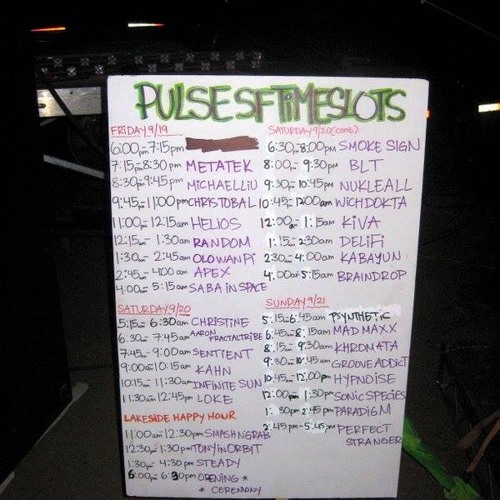 PULSE SF TIMESLOTS
FRIDAY 9/19
6:00pm-7:15pm
7:15pm-8:30pm METATEK
8:30pm-9:45pm MICHAEL LIU
9:45pm-11:00pm CHRISTOBAL
11:00pm-12:15am HELIOS
12:15am-1:30am RANDOM
1:30am-2:45am OLOWANPI
2:45am-4:00am APEX
4:00am-5:15am SABA IN SPACE
SATURDAY 9/20
5:15am-6:30am CHRISTINE
6:30am-7:45am AARON FRACTALTRIBE
7:45am-9:00am SENTIENT
9:00am-10:15am KAHN
10:15am-11:30am INFINITE SUN
11:30am-12:45pm LOKE
LAKESIDE HAPPY HOUR
11:00am-12:30pm SMASHNGRAB
12:30pm-1:30pm TONY IN ORBIT
1:30pm-4:30pm STEADY
6:00pm-6:30pm OPENING *
* CEREMONY
SATURDAY 9/20 (cont.)
6:30pm-8:00pm SMOKE SIGN
8:00pm-9:30pm BLT
9:30pm-10:45pm NUKLEALL
10:45pm-12:00am WICHDOKTA
12:00am-1:15am KIVA
1:15am-2:30am DELIFI
2:30am-4:00am KABAYUN
4:00am-5:15am BRAINDROP
SUNDAY 9/21
5:15am-6:45am PSYNTHETIC
6:45am-8:15am MAD MAXX
8:15am-9:30am KHROMATA
9:30am-10:45am GROOVE ADDICT
10:45am-12:00pm HYPNOISE
12:00pm-1:30pm SONIC SPECIES
1:30pm-2:45pm PARADIGM
2:45pm-5:45pm PERFECT
STRANGER